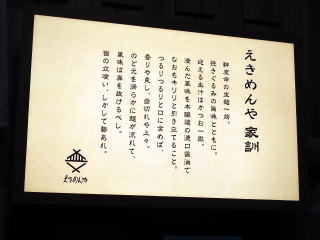 えきめんや家訓
鮮度命の生麺一捻。
挽きぐるみの旨味とともに。
迎える出汁はかつお一番。
澄んだ風味を本醸造の濃口醤油で
なおもキリリと引き立てること。
つるりつるりと口に含めば、
香りや良し、歯切れや上々。
のど元を滑らかに麺が流れて、
風味は鼻を抜けるべし。
街の立喰い、しかして藝あれ。
えきめんや